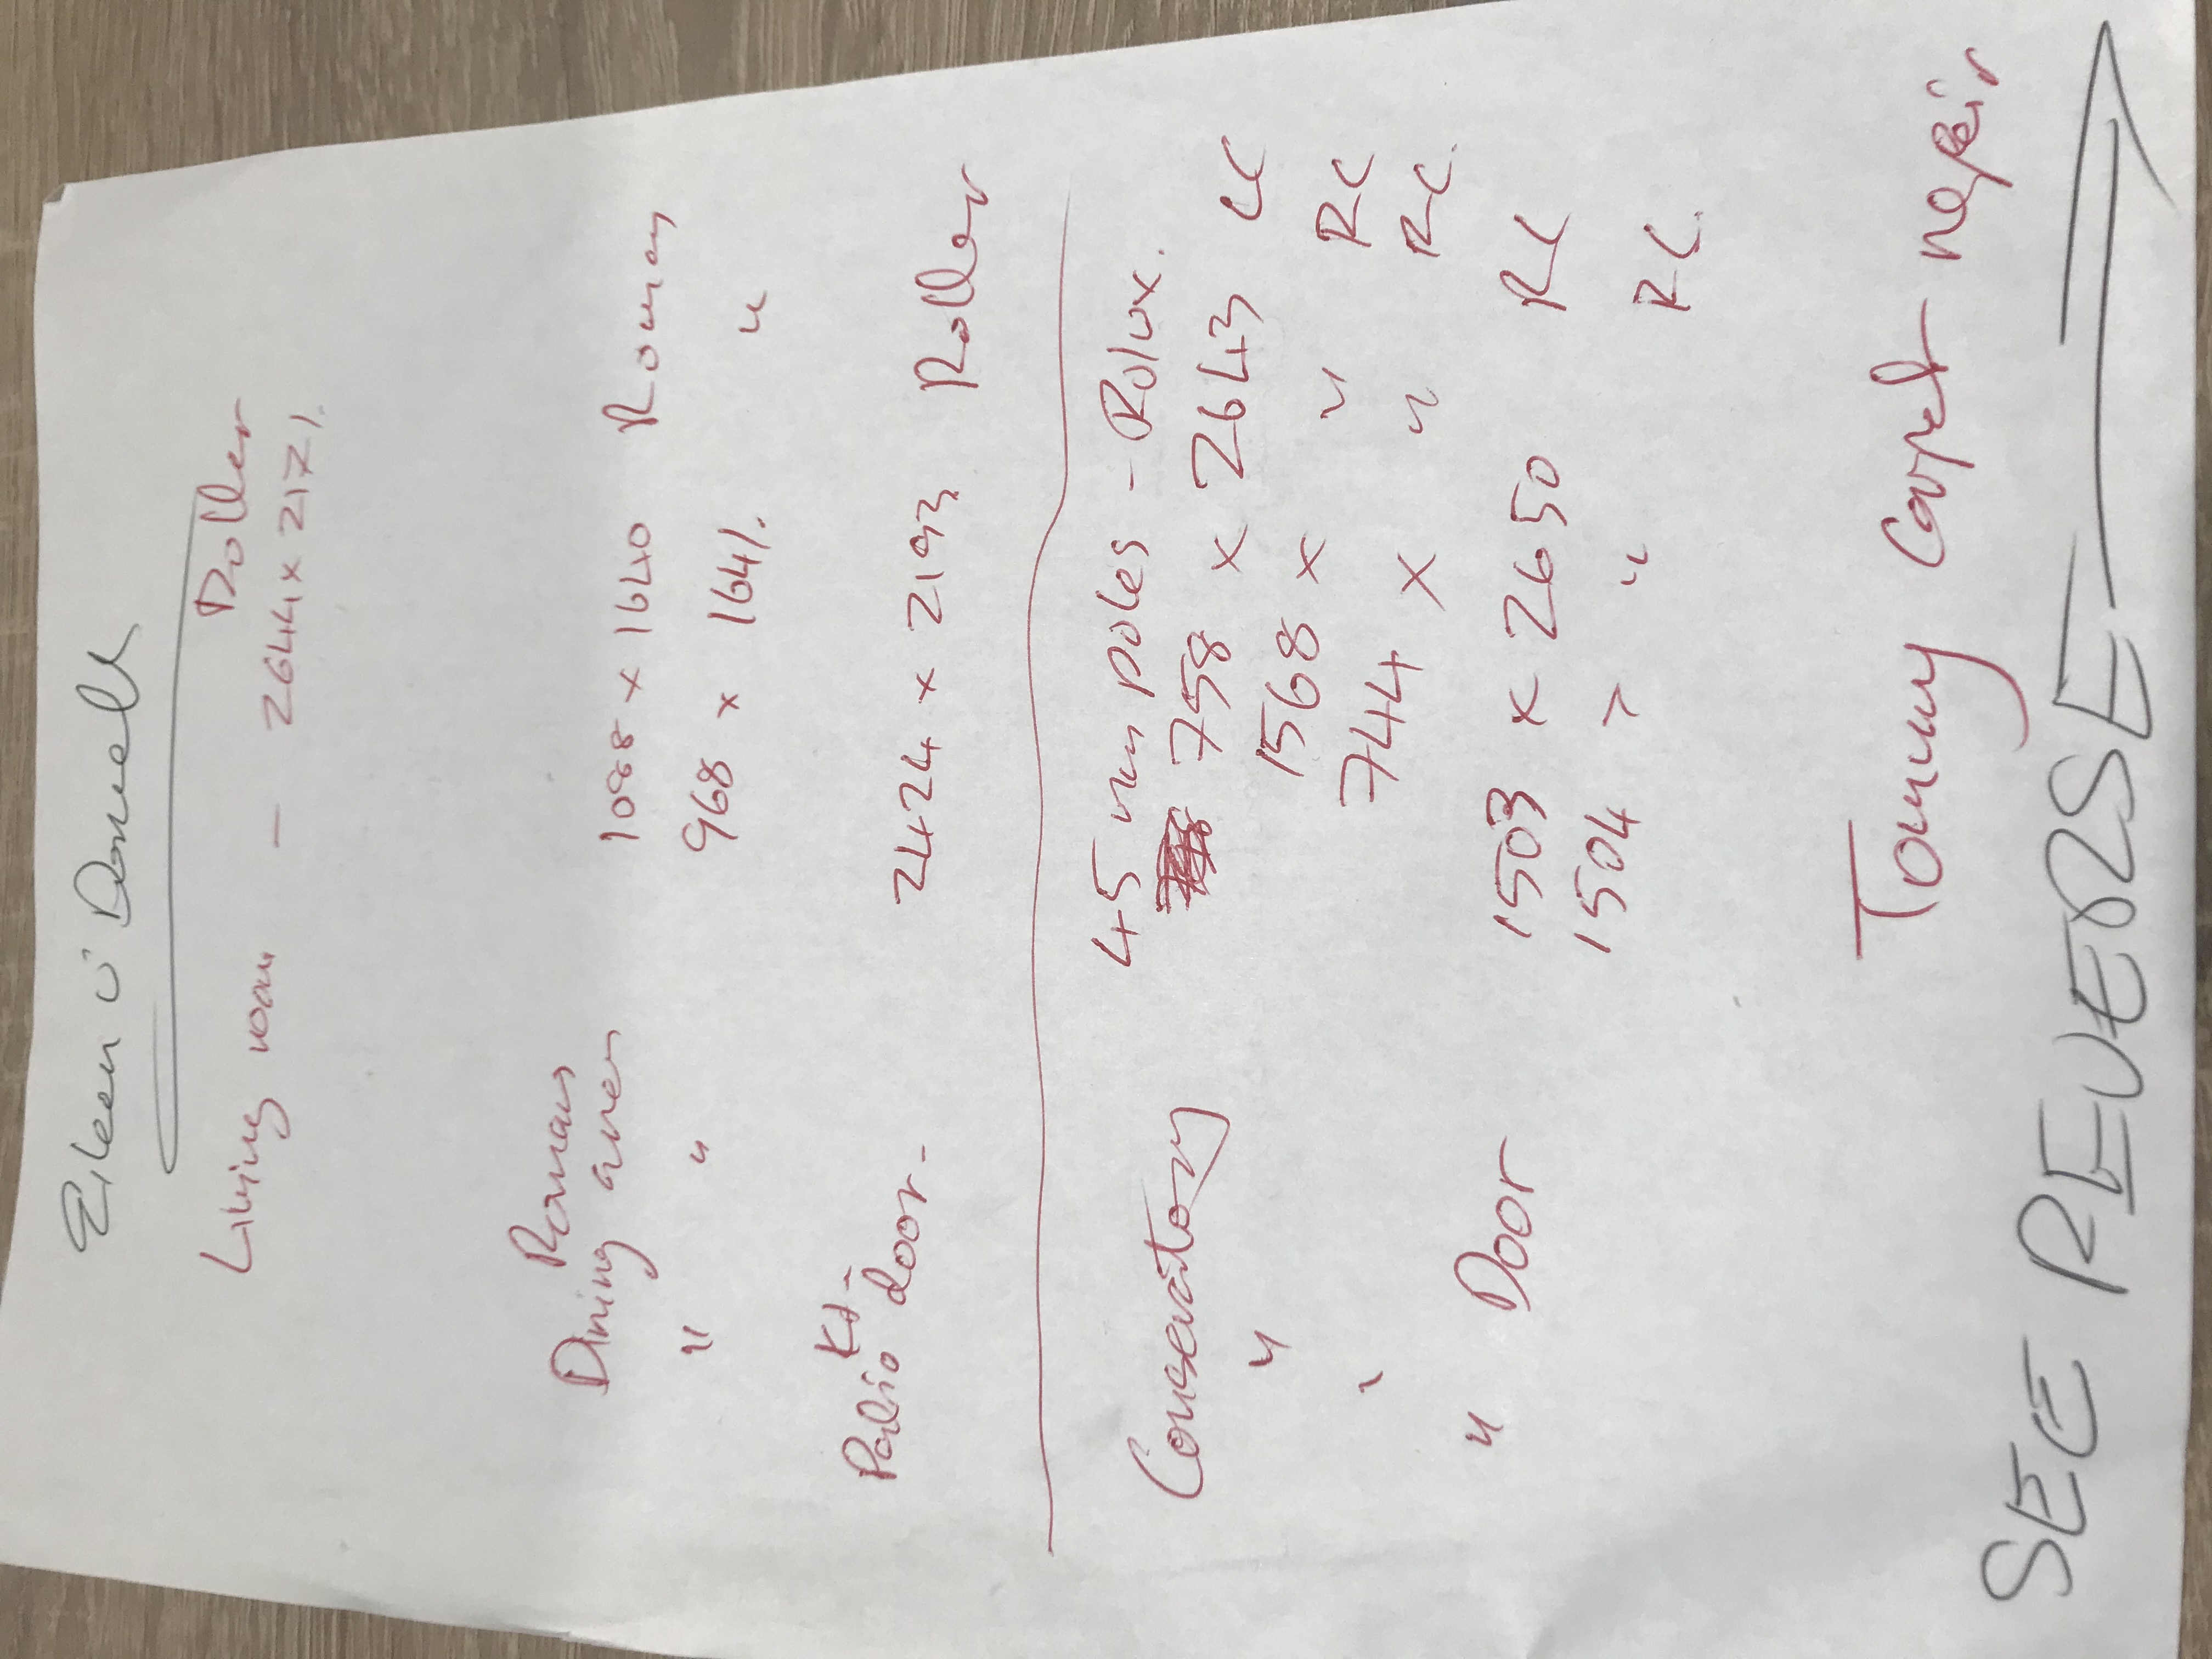 Eileen O'Donnell
Roller
Living room - 2644 x 2171.
Romans
Dining area 1088 x 1640 Roman
" " 968 x 1641. "
Kit-
Patio door. 2424 x 2193 Roller
45 mm poles - Rolux.
Conservatory 758 x 2643 LC
" 1568 x " RC
" 744 x " RC.
" Door 1503 x 2650 RC
1504 x " RC.
Tommy Carpet repair
SEE REVERSE